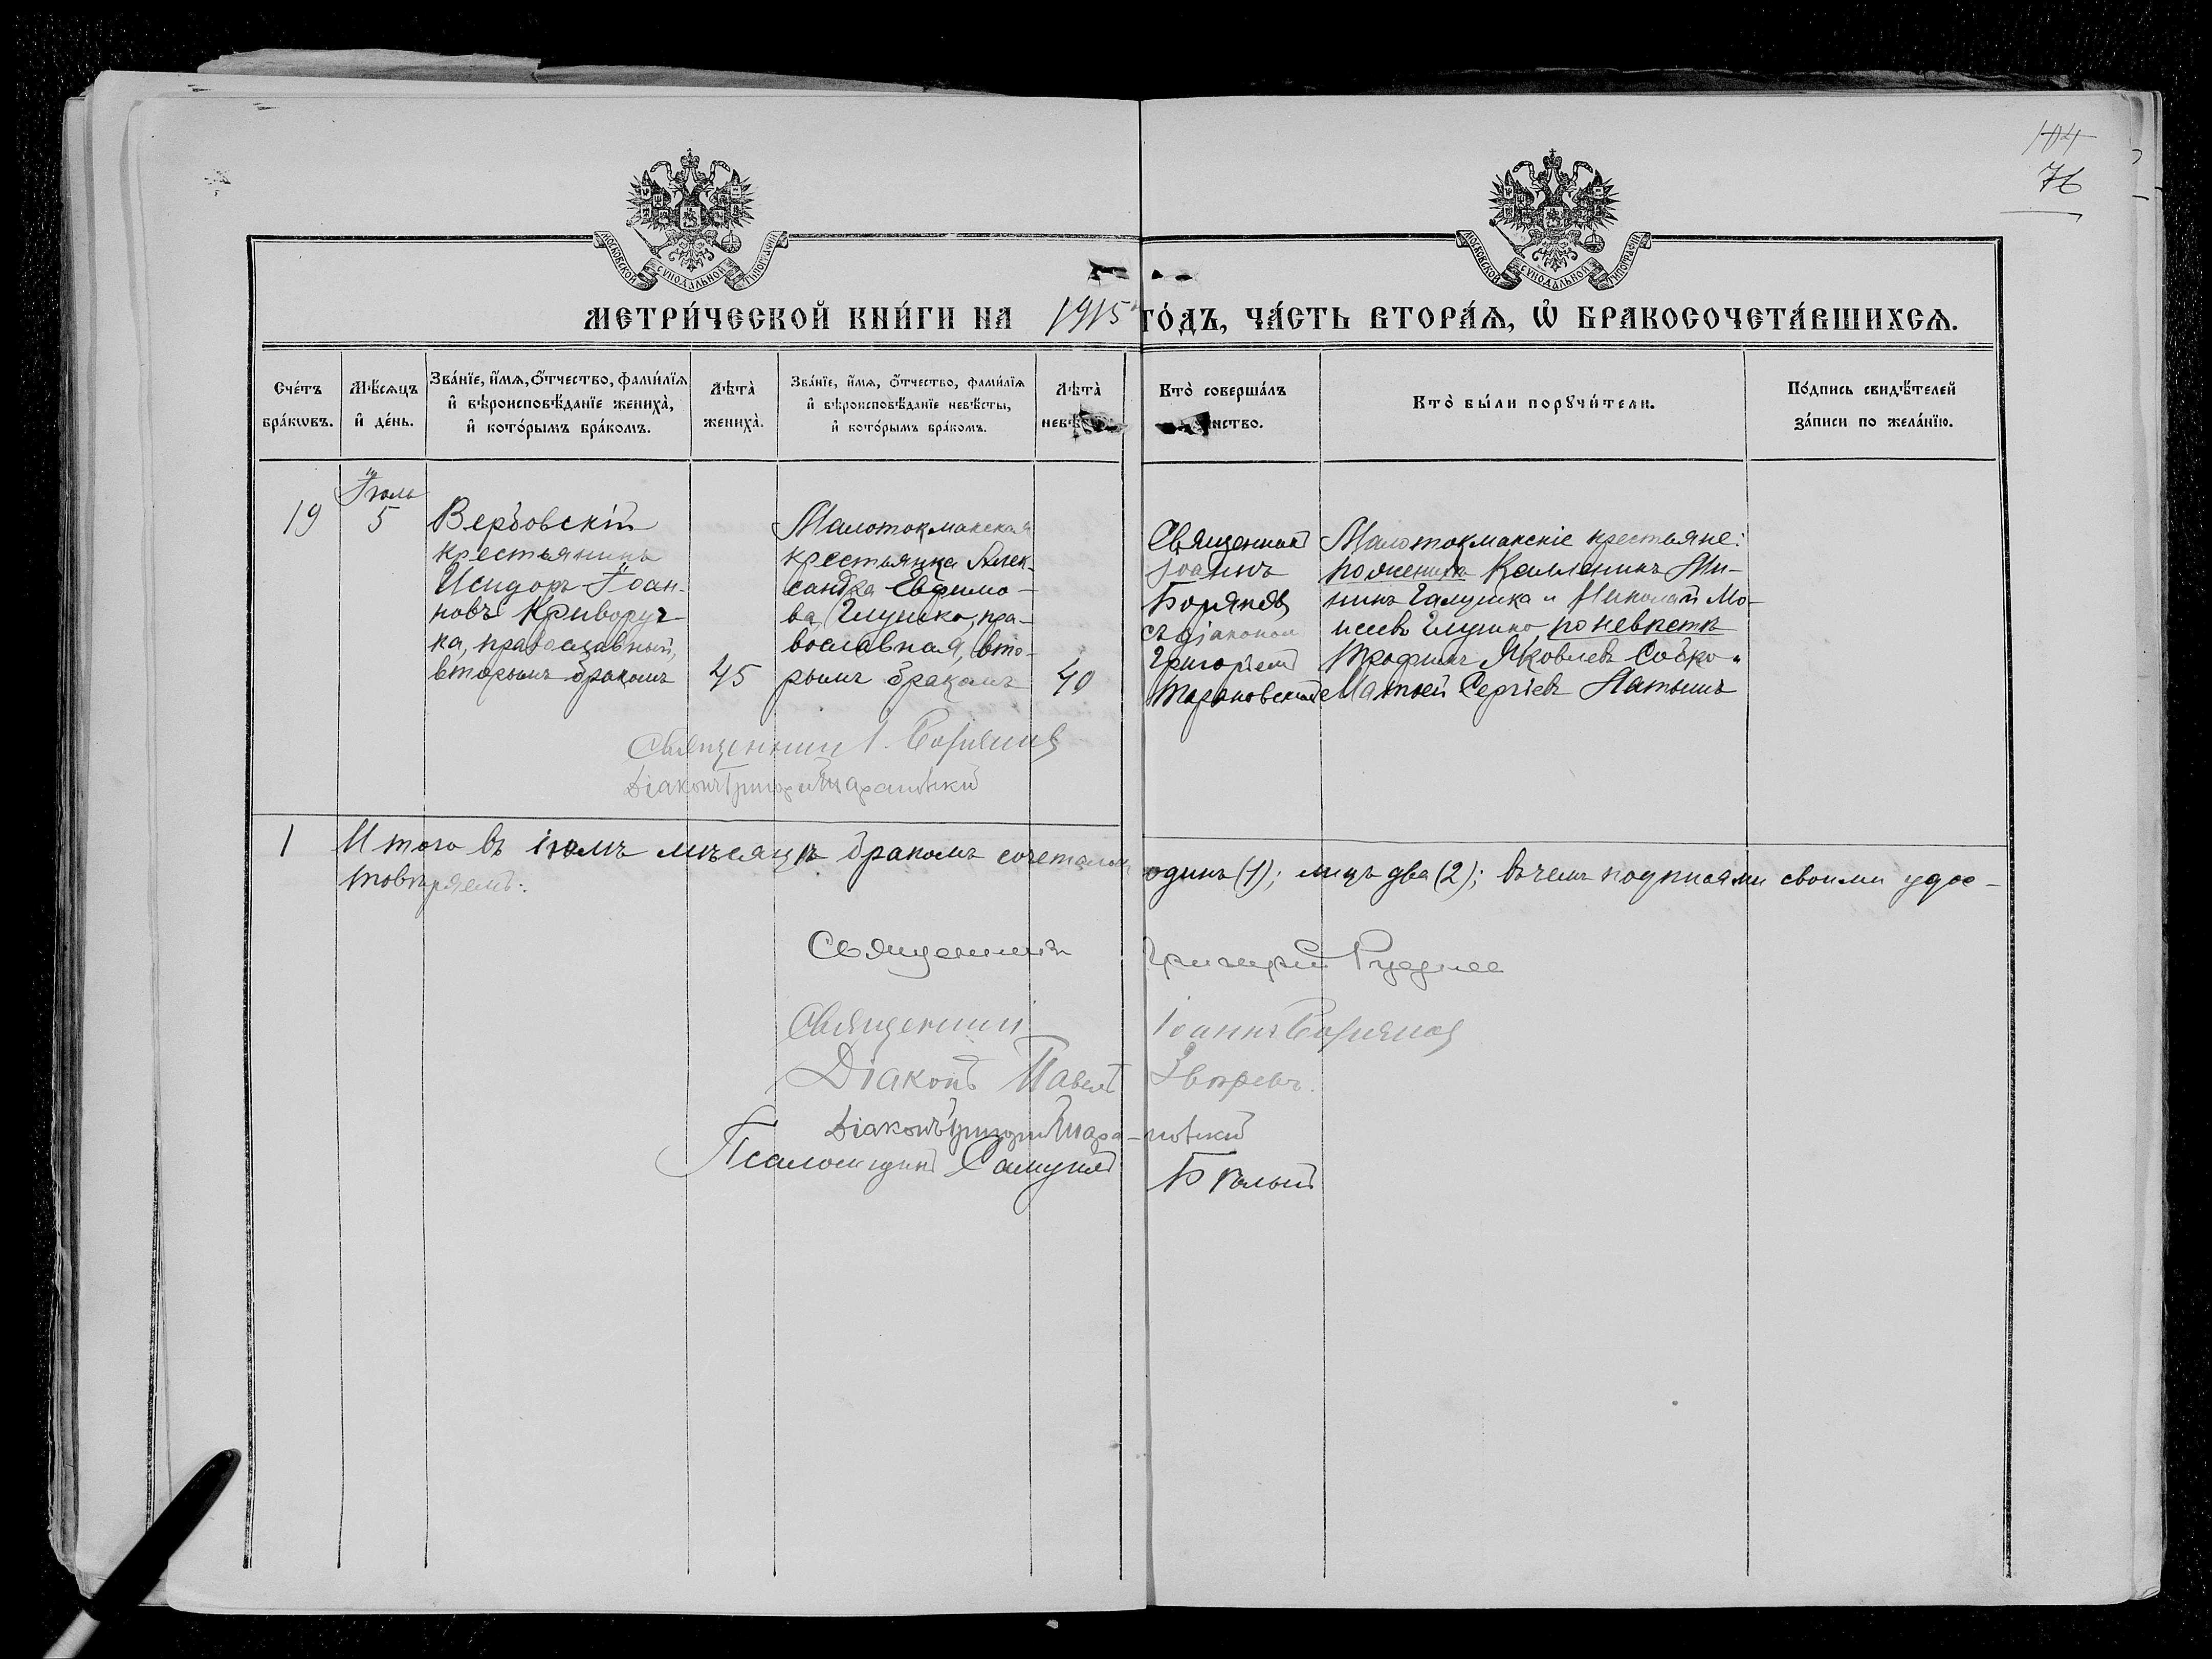 104
76
МОСКОВСКОЙ СѴНОДАЛЬНОЙ ТИПОГРАФІИ
МОСКОВСКОЙ СѴНОДАЛЬНОЙ ТИПОГРАФІИ
МЕТРИ́ЧЕСКОЙ КНИ́ГИ НА 1915 ГО́ДЪ, ЧА́СТЬ ВТОРА́Ѧ, Ѡ҆ БРАКОСОЧЕТА́ВШИХСѦ.
Сче́тъ
бра́кѡвъ.
Мѣ́сѧцъ
и҆ де́нь.
Зва́нїе, и҆́мѧ, ѻ҆́тчество, фами́лїѧ
и҆ вѣроисповѣ́данїе жениха̀,
и҆ кото́рымъ бра́комъ.
Лѣ́та̀
жениха̀.
Зва́нїе, и҆́мѧ, ѻ҆́тчество, фами́лїѧ
и҆ вѣроисповѣ́данїе невѣ́сты,
и҆ кото́рымъ бра́комъ.
Лѣ́та̀
невѣ́
Кто̀ соверша́лъ
инство.
Кто̀ бы́ли порꙋчи́тели.
По́дпись свидѣ́телей
за́писи по жела́нїю.
19
Іюль
5
Вербовскій
крестьянинъ
Исидоръ Іоан-
новъ Криворуч-
ка, православный,
вторымъ бракомъ
45
Малотокмакская
крестьянка Алек-
сандра Евфимо-
ва Глушко, пра-
вославная, вто-
рымъ бракомъ
40
Священникъ
Іоаннъ
съ діакономъ
Григоріемъ
Тарановскимъ
Малотокмакскіе крестьяне:
по женихѣ Ми-
нинъ Галушка и Николай Мо-
исеевъ Глушко, по невѣстѣ
Трофимъ Яковлевъ Собко и
Матѳей Сергіевъ
Священникъ І.
Діаконъ Григорій Тарановскій
1
Итого въ іюлѣ мѣсяцѣ бракомъ сочеталось одинъ (1); лицъ два (2); въ чемъ подписями своими удос-
товѣряемъ:
Священникъ Григорій
Священникъ Іоаннъ
Діаконъ Павелъ Звѣревъ.
Діаконъ Григорій Тара-новскій
Псаломщикъ Самуилъ Бѣлый